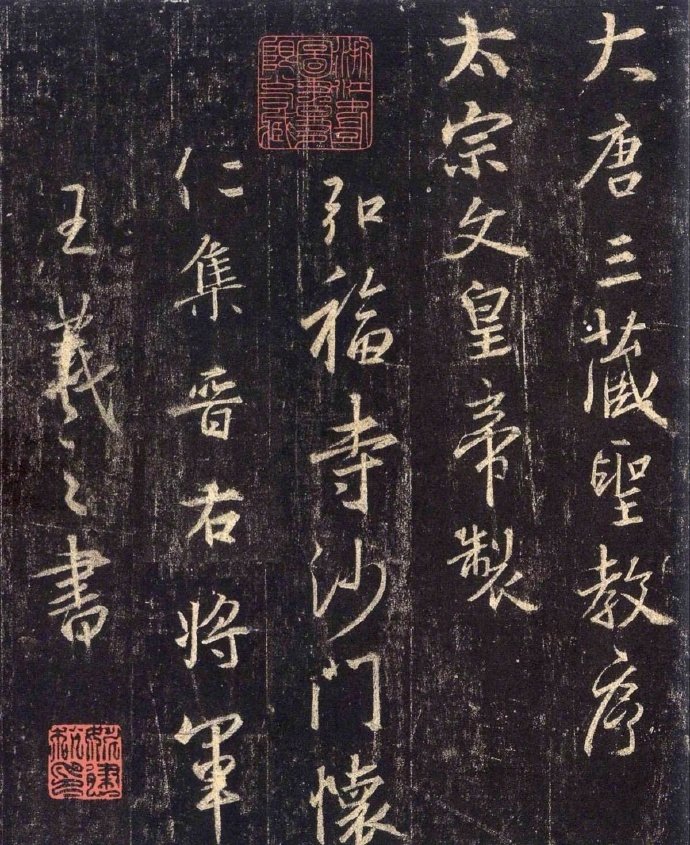 大唐三藏聖教序
太宗文皇帝製
弘福寺沙门懷
仁集晉右將軍
王羲之書